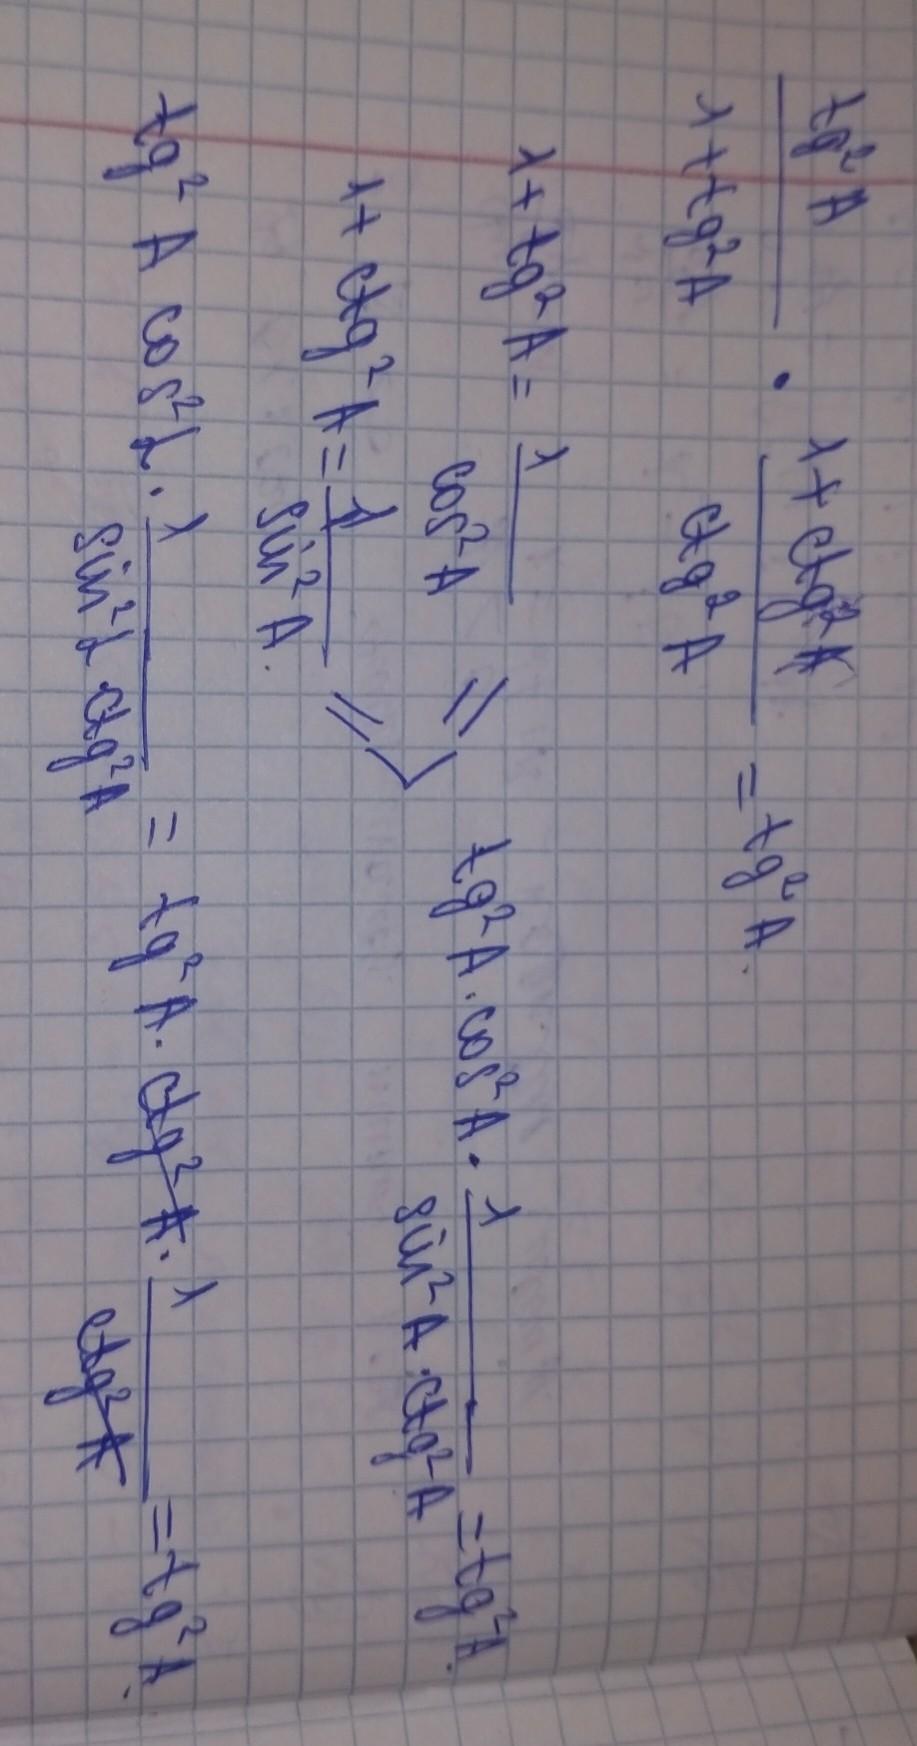 tg²A / 1+tg²A · 1+ctg²A / ctg²A = tg²A.
1+tg²A = 1 / cos²A
1+ctg²A = 1 / sin²A.
=> tg²A · cos²A · 1 / sin²A · ctg²A = tg²A.
tg²A cos²L · 1 / sin²L · ctg²A = tg²A · ctg²A · 1 / ctg²A = tg²A.